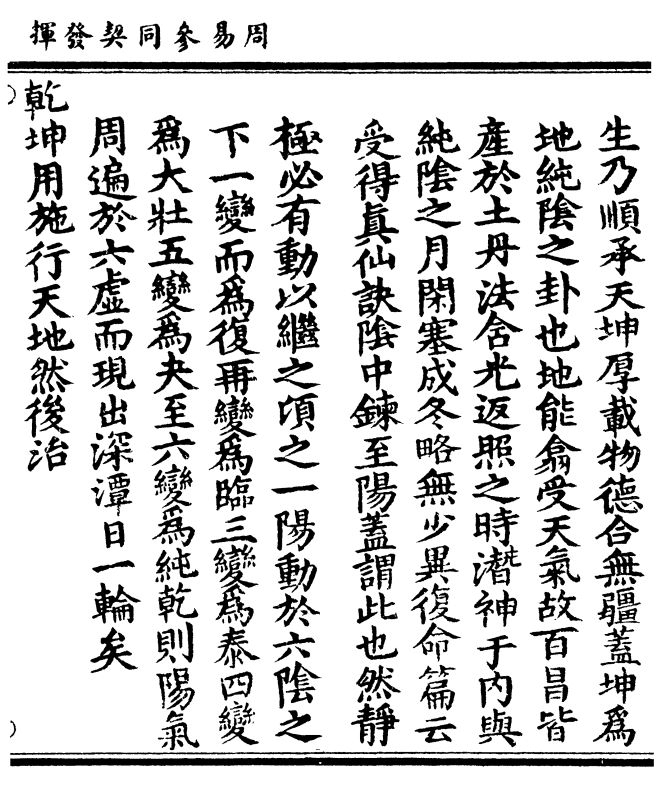 周易參同契發揮
生乃順承天坤厚載物德合無疆蓋坤爲
地純陰之卦也地能翕受天氣故百昌皆
產於土丹法含光返照之時潛神于內與
純陰之月閉塞成冬略無少異復命篇云
受得眞仙訣陰中鍊至陽蓋謂此也然靜
極必有動以繼之頃之一陽動於六陰之
下一變而爲復再變爲臨三變爲泰四變
爲大壯五變爲夬至六變爲純乾則陽氣
周遍於六虛而現出深潭日一輪矣
乾坤用施行天地然後治